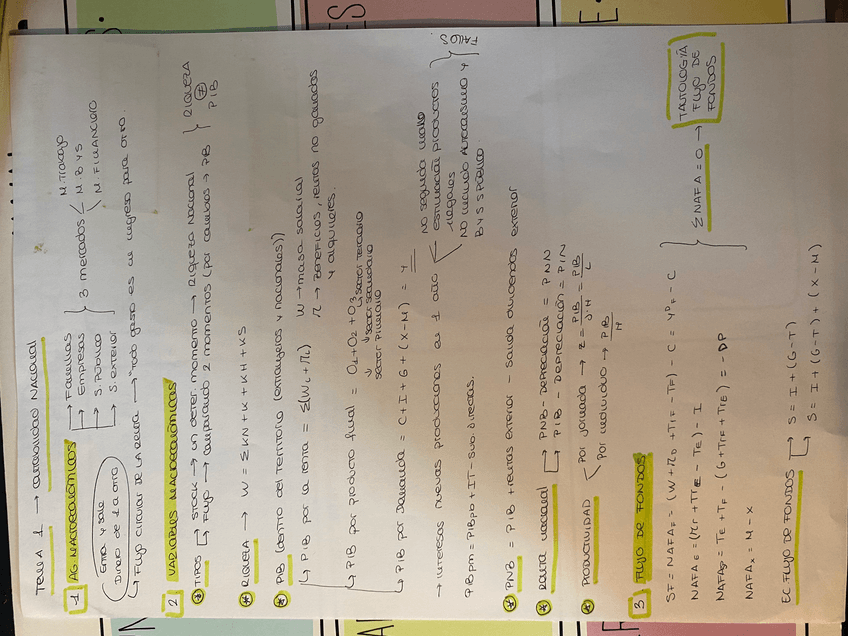 TEMA 1 → CONTABILIDAD NACIONAL
1 AG MACROECONÓMICOS → Familias
→ Empresas
→ S. Público
→ S. Exterior
3 mercados
M. Trabajo
M. B y S
M. Financiero
Entra y sale
Dinero de 1 a otro
→ Flujo circular de la renta → "Todo gasto es un ingreso para otro.
2 VARIABLES MACROECONÓMICAS
* TIPOS → Stock → un deter. momento → Riqueza Nacional
→ Flujo → comparando 2 momentos (por cambios → PIB
RIQUEZA
≠
PIB
* RIQUEZA → W = ΣKN + K + KH + KS
* PIB (dentro del territorio (extranjeros y nacionales))
→ PIB por la renta = Σ(Wi + πi)
W → masa salarial
π → Beneficios, rentas no ganadas
y alquileres.
→ PIB por producto final = O1 + O2 + O3
→ sector terciario
→ sector secundario
sector primario
→ PIB por Demanda = C + I + G + (X - M) = Y
→ Interesas nuevas producciones en 1 año
No segunda mano
estimación productos
ilegales
No incluido Autoconsumo y
B y S S Público.
FALLOS
PIBpm = PIBpb + IT - Sub. directas.
* PNB = PIB + rentas exterior - Salida dividendos exterior
* Renta nacional → PNB - Depreciación = PNN
→ PIB - Depreciación = PIN
* PRODUCTIVIDAD
Por jornada → z = PIB / JH = PIB / L
Por individuo → PIB / H
3 FLUJO DE FONDOS
SF = NAFAF = (W + πD + TrF - TF) - C = YDF - C
NAFAE = (πr + TrE - TE) - I
NAFAG = TE + TF - (G + TrF + TrE) = -DP
NAFAX = M - X
Σ NAFA = 0 → TAUTOLOGÍA
FLUJO DE
FONDOS
EC FLUJO DE FONDOS → S = I + (G - T)
→ S = I + (G - T) + (X - M)